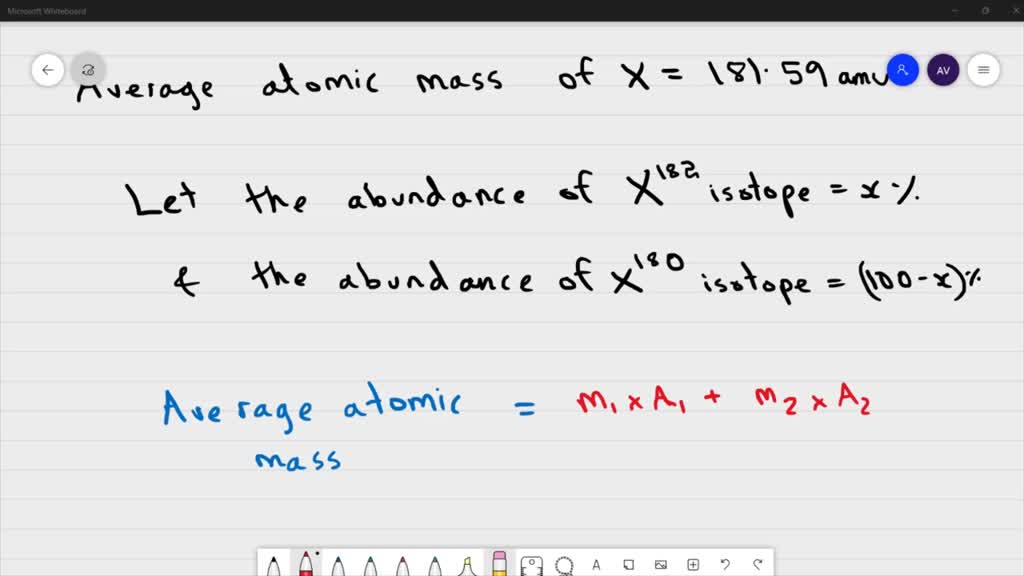 Microsoft Whiteboard
Average atomic mass of X = 181.59 amu
AV
Let the abundance of X¹⁸² isotope = x %.
& the abundance of X¹⁸⁰ isotope = (100-x)%
Average atomic = m₁ x A₁ + m₂ x A₂
mass
A